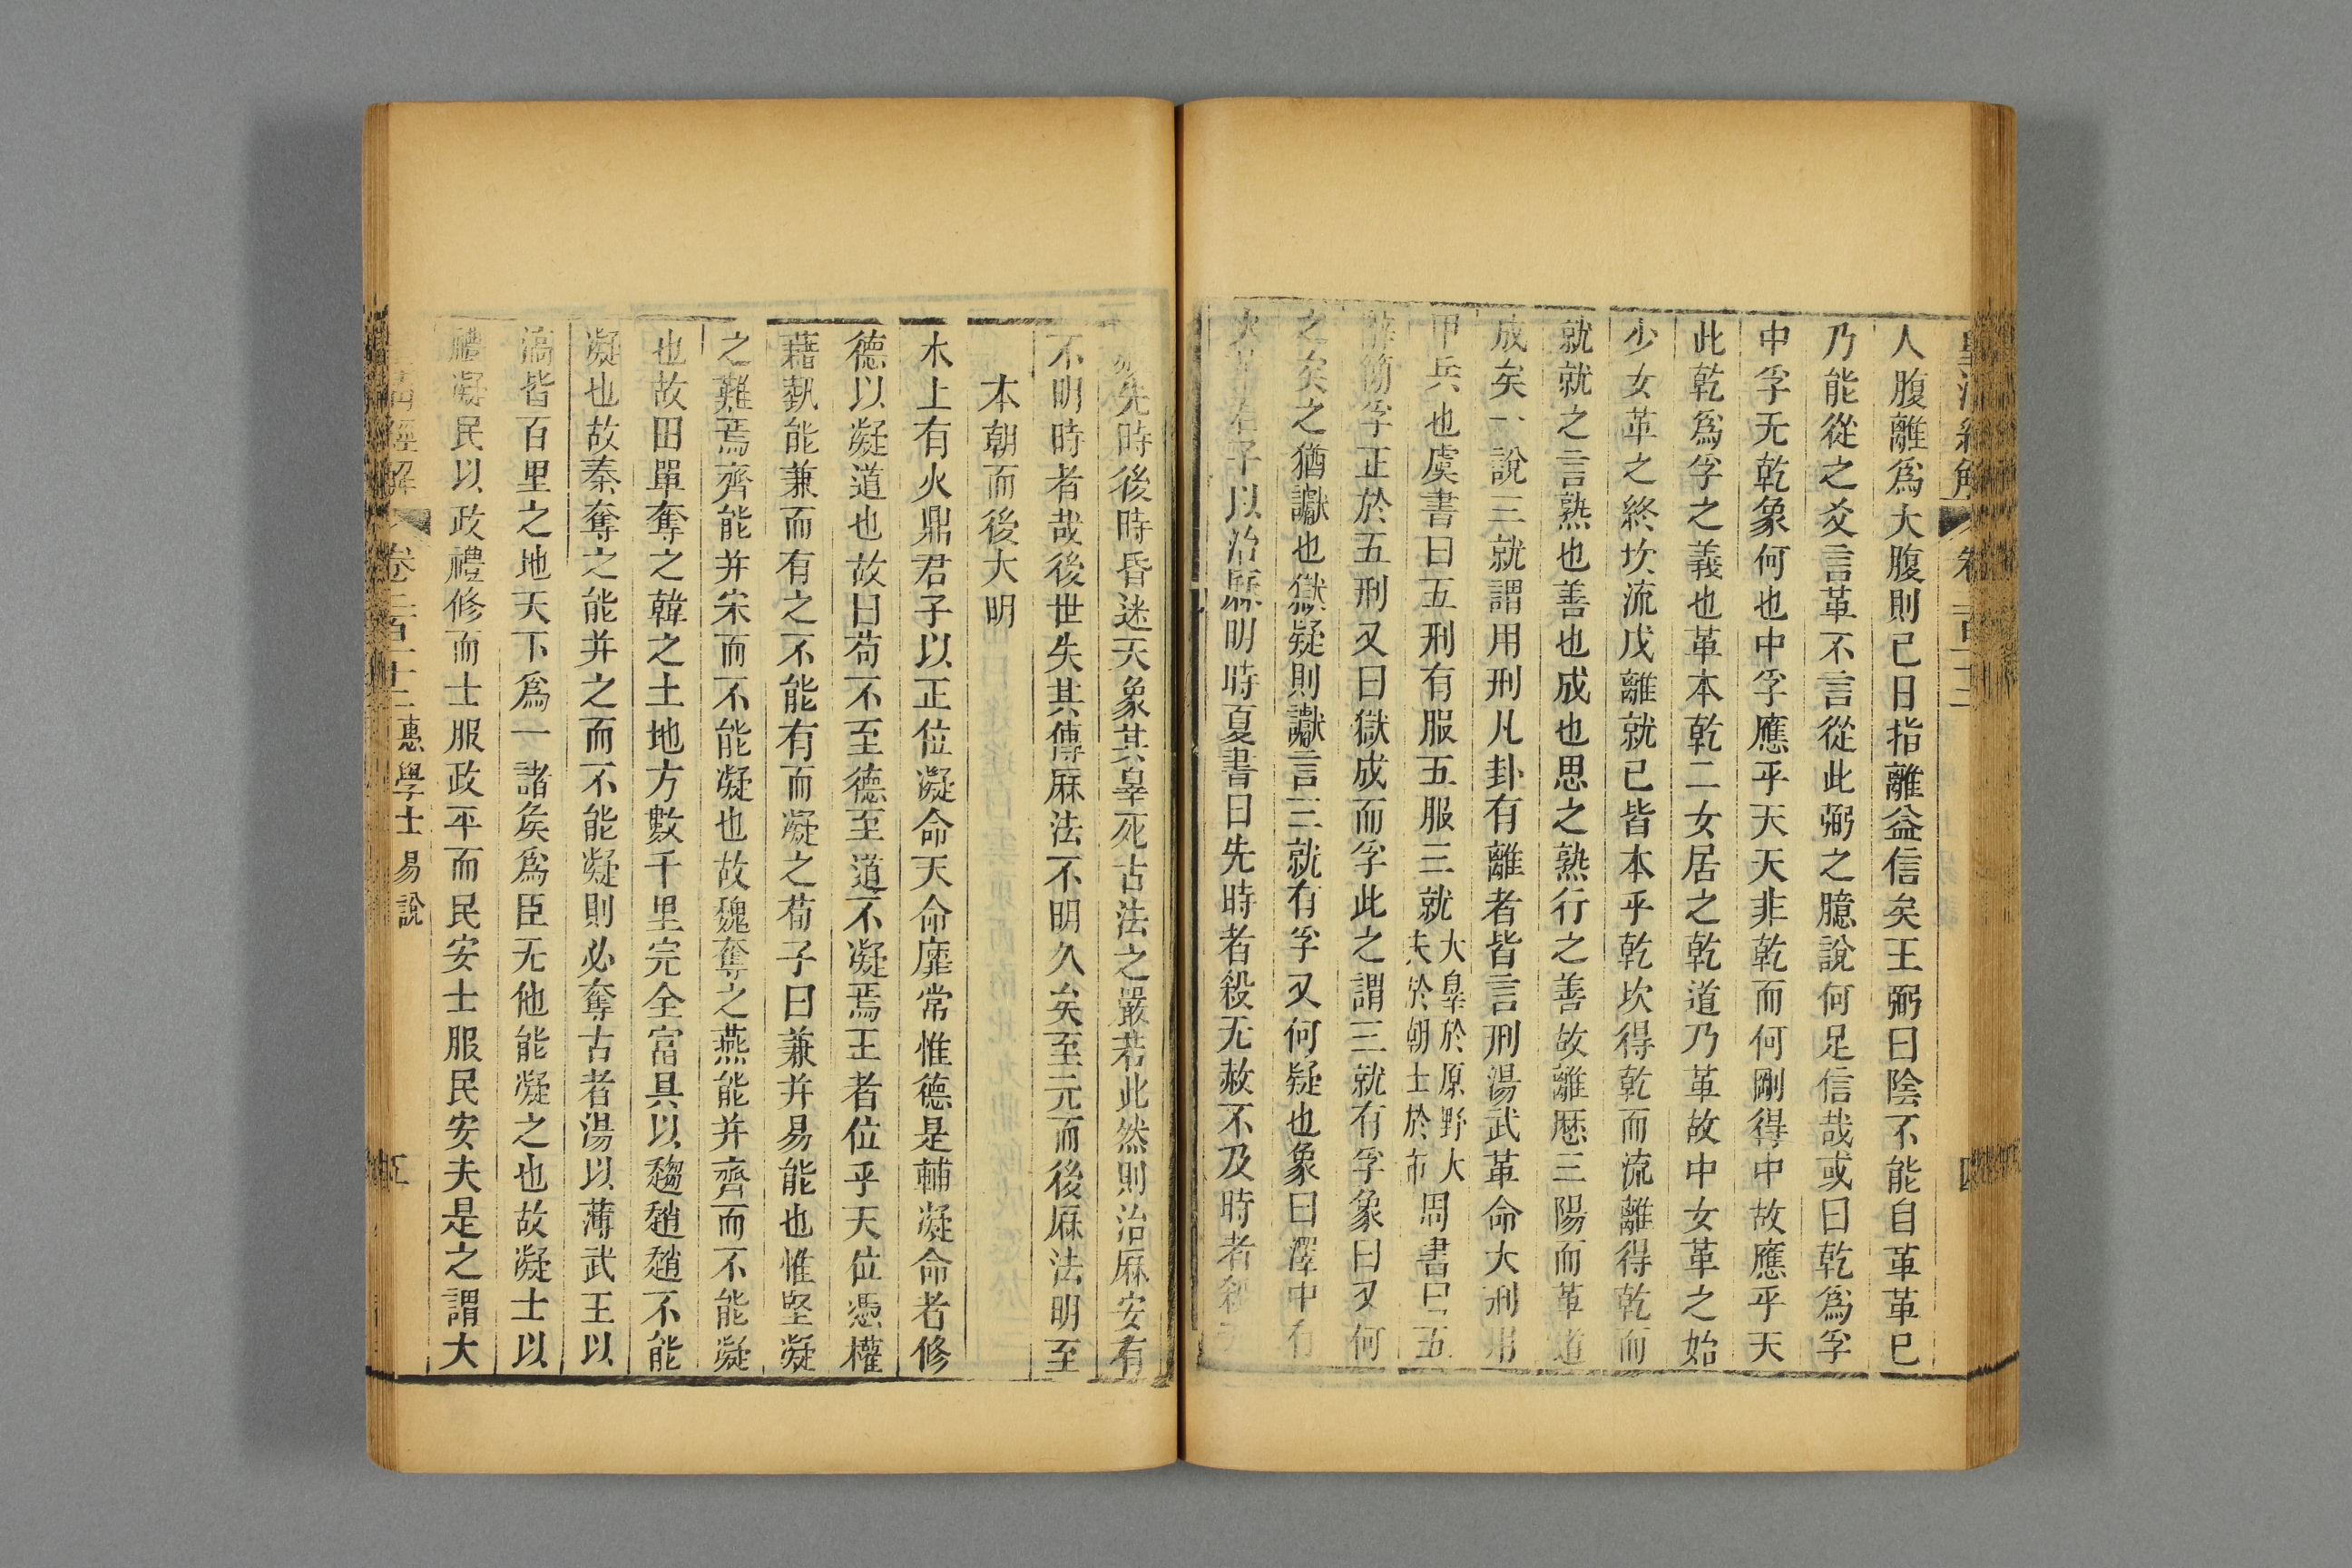 皇清經解 卷二百十三
人腹離爲大腹則已日指離益信矣王弼曰陰不能自革革已
乃能從之爻言革不言從此弼之臆說何足信哉或曰乾爲孚
中孚无乾象何也中孚應乎天天非乾而何剛得中故應乎天
此乾爲孚之義也革本乾二女居之乾道乃革故中女革之始
少女革之終坎流戊離就已皆本乎乾坎得乾而流離得乾而
就就之言熟也善也成也思之熟行之善故離歷三陽而革道
成矣一說三就謂用刑凡卦有離者皆言刑湯武革命大刑用
甲兵也虞書曰五刑有服五服三就大辠於原野大夫於朝士於市周書曰五
辭簡孚正於五刑又曰獄成而孚此之謂三就有孚象曰又何
之矣之猶讞也獄疑則讞言三就有孚又何疑也象曰澤中有
火革君子以治厤明時夏書曰先時者殺无赦不及時者殺无
赦先時後時昏迷天象其辠死古法之嚴若此然則治厤安有
不明時者哉後世失其傳厤法不明久矣至元而後厤法明至
本朝而後大明
木上有火鼎君子以正位凝命天命靡常惟德是輔凝命者修
德以凝道也故曰苟不至德至道不凝焉王者位乎天位憑權
藉埶能兼而有之不能有而凝之荀子曰兼并易能也惟堅凝
之難焉齊能并宋而不能凝也故魏奪之燕能并齊而不能凝
也故田單奪之韓之土地方數千里完全富具以趨趙趙不能
凝也故秦奪之能并之而不能凝則必奪古者湯以薄武王以
滈皆百里之地天下爲一諸矦爲臣无他能凝之也故凝士以
禮凝民以政禮修而士服政平而民安士服民安夫是之謂大
皇清經解 卷二百十三 惠學士易說 五